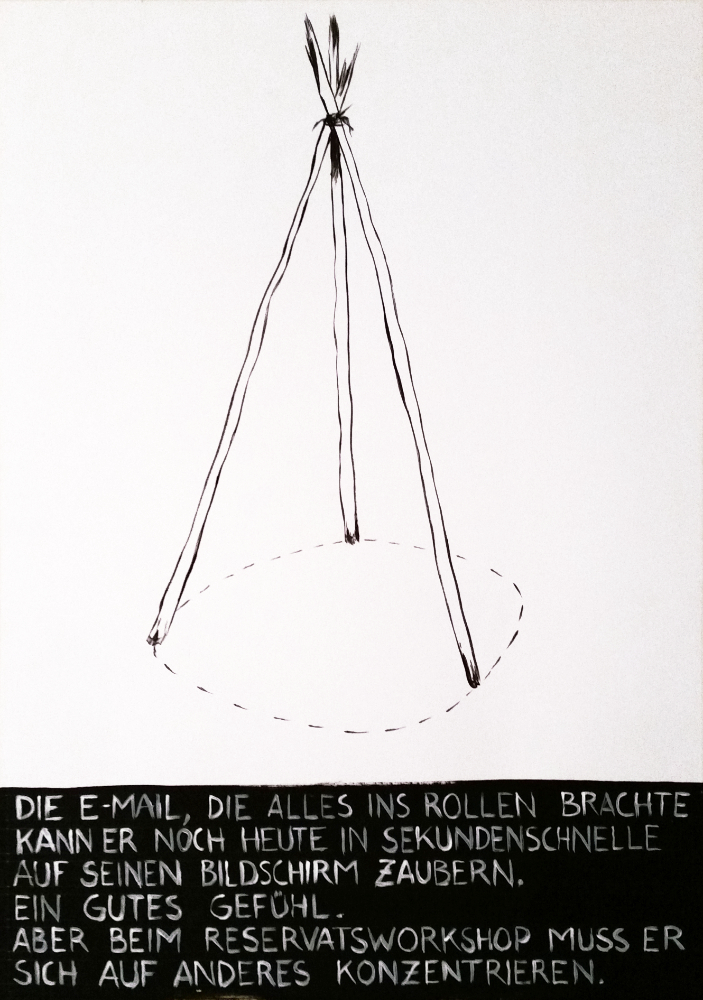 DIE E-MAIL, DIE ALLES INS ROLLEN BRACHTE
KANN ER NOCH HEUTE IN SEKUNDENSCHNELLE
AUF SEINEN BILDSCHIRM ZAUBERN.
EIN GUTES GEFÜHL.
ABER BEIM RESERVATSWORKSHOP MUSS ER
SICH AUF ANDERES KONZENTRIEREN.